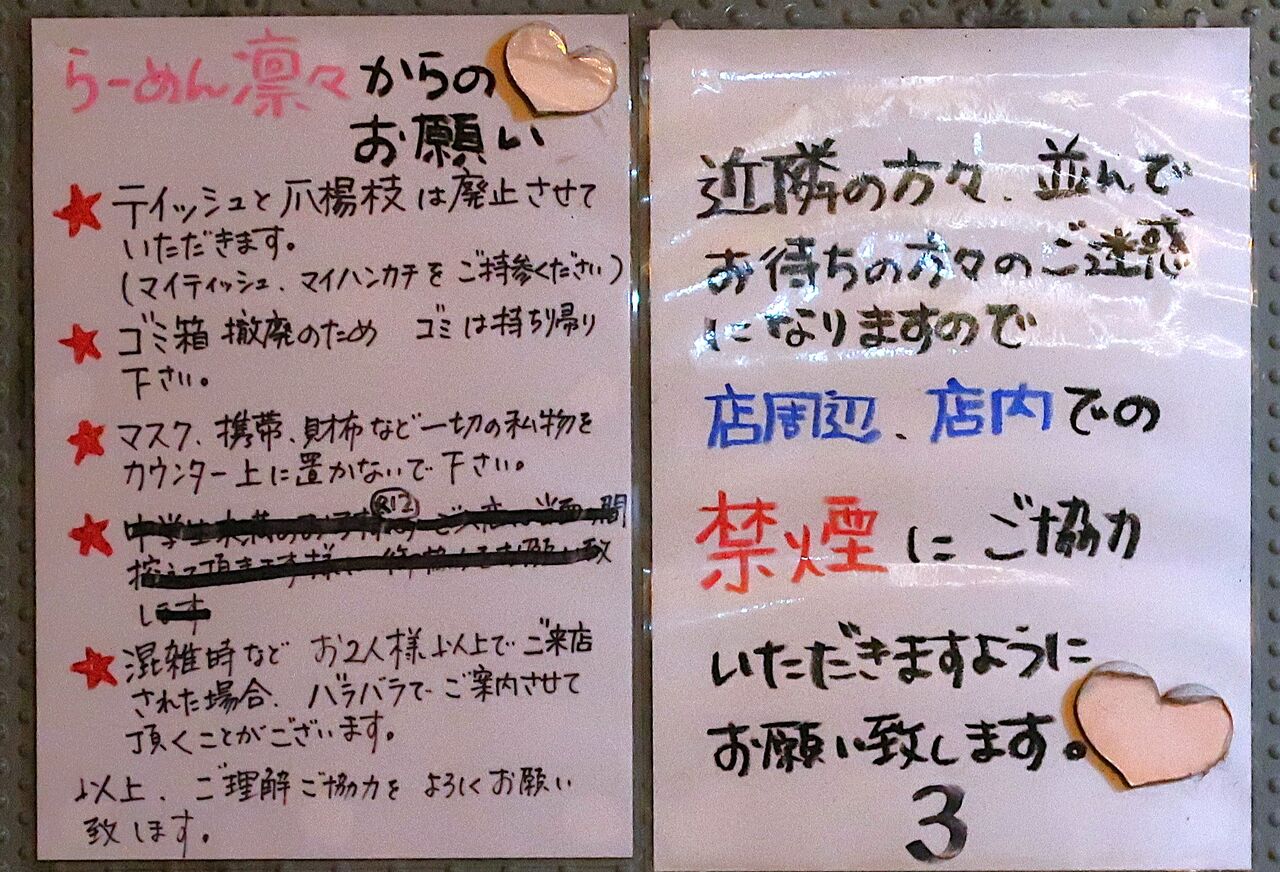 らーめん凛々からの
お願い
★ ティッシュと爪楊枝は廃止させて
いただきます。
(マイティッシュ、マイハンカチをご持参ください)
★ ゴミ箱撤廃のため ゴミは持ち帰り
下さい。
★ マスク、携帯、財布など一切の私物を
カウンター上に置かないで下さい。
★
R12
★ 混雑時など お2人様以上でご来店
された場合、バラバラでご案内させて
頂くことがございます。
以上、ご理解ご協力をよろしくお願い
致します。
近隣の方々、並んで
お待ちの方々のご迷惑
になりますので
店周辺、店内での
禁煙にご協力
いただきますように
お願い致します。
3